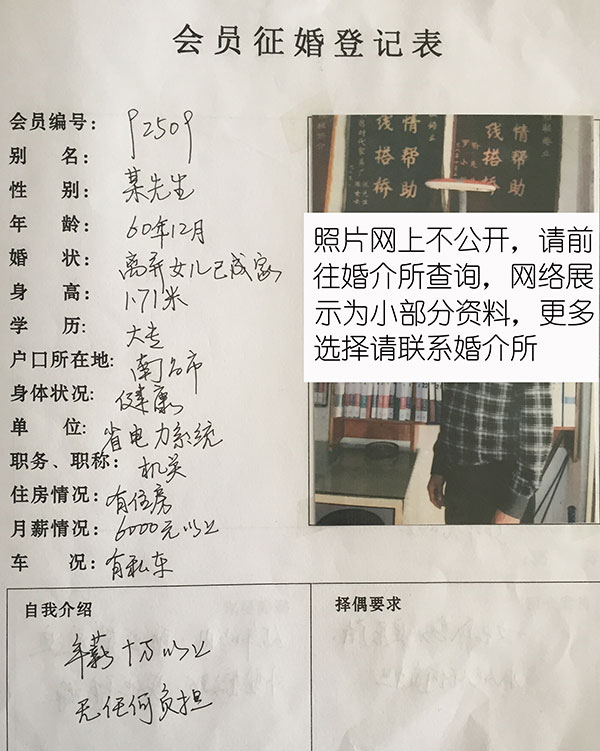 会员征婚登记表
会员编号：92509
别 名：某先生
性 别：
年 龄：60年12月
婚 状：离异女儿已成家
身 高：1.71米
学 历：大专
户口所在地：南昌市
身体状况：健康
单 位：省电力系统
职务、职称：机关
住房情况：有住房
月薪情况：6000元以上
车 况：有私车
情帮助
线搭桥
情帮助
线搭桥
照片网上不公开，请前
往婚介所查询，网络展
示为小部分资料，更多
选择请联系婚介所
自我介绍
年薪十万以上
无任何负担
择偶要求